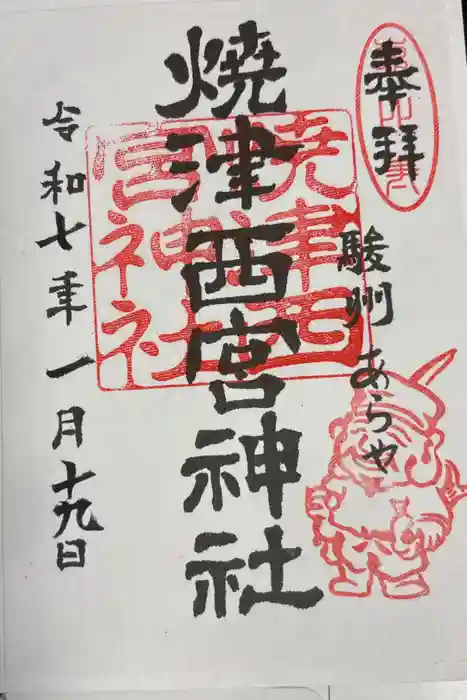 奉拝
駿州 あらや
焼津西宮神社
令和七年一月十九日
焼津西
宮神社